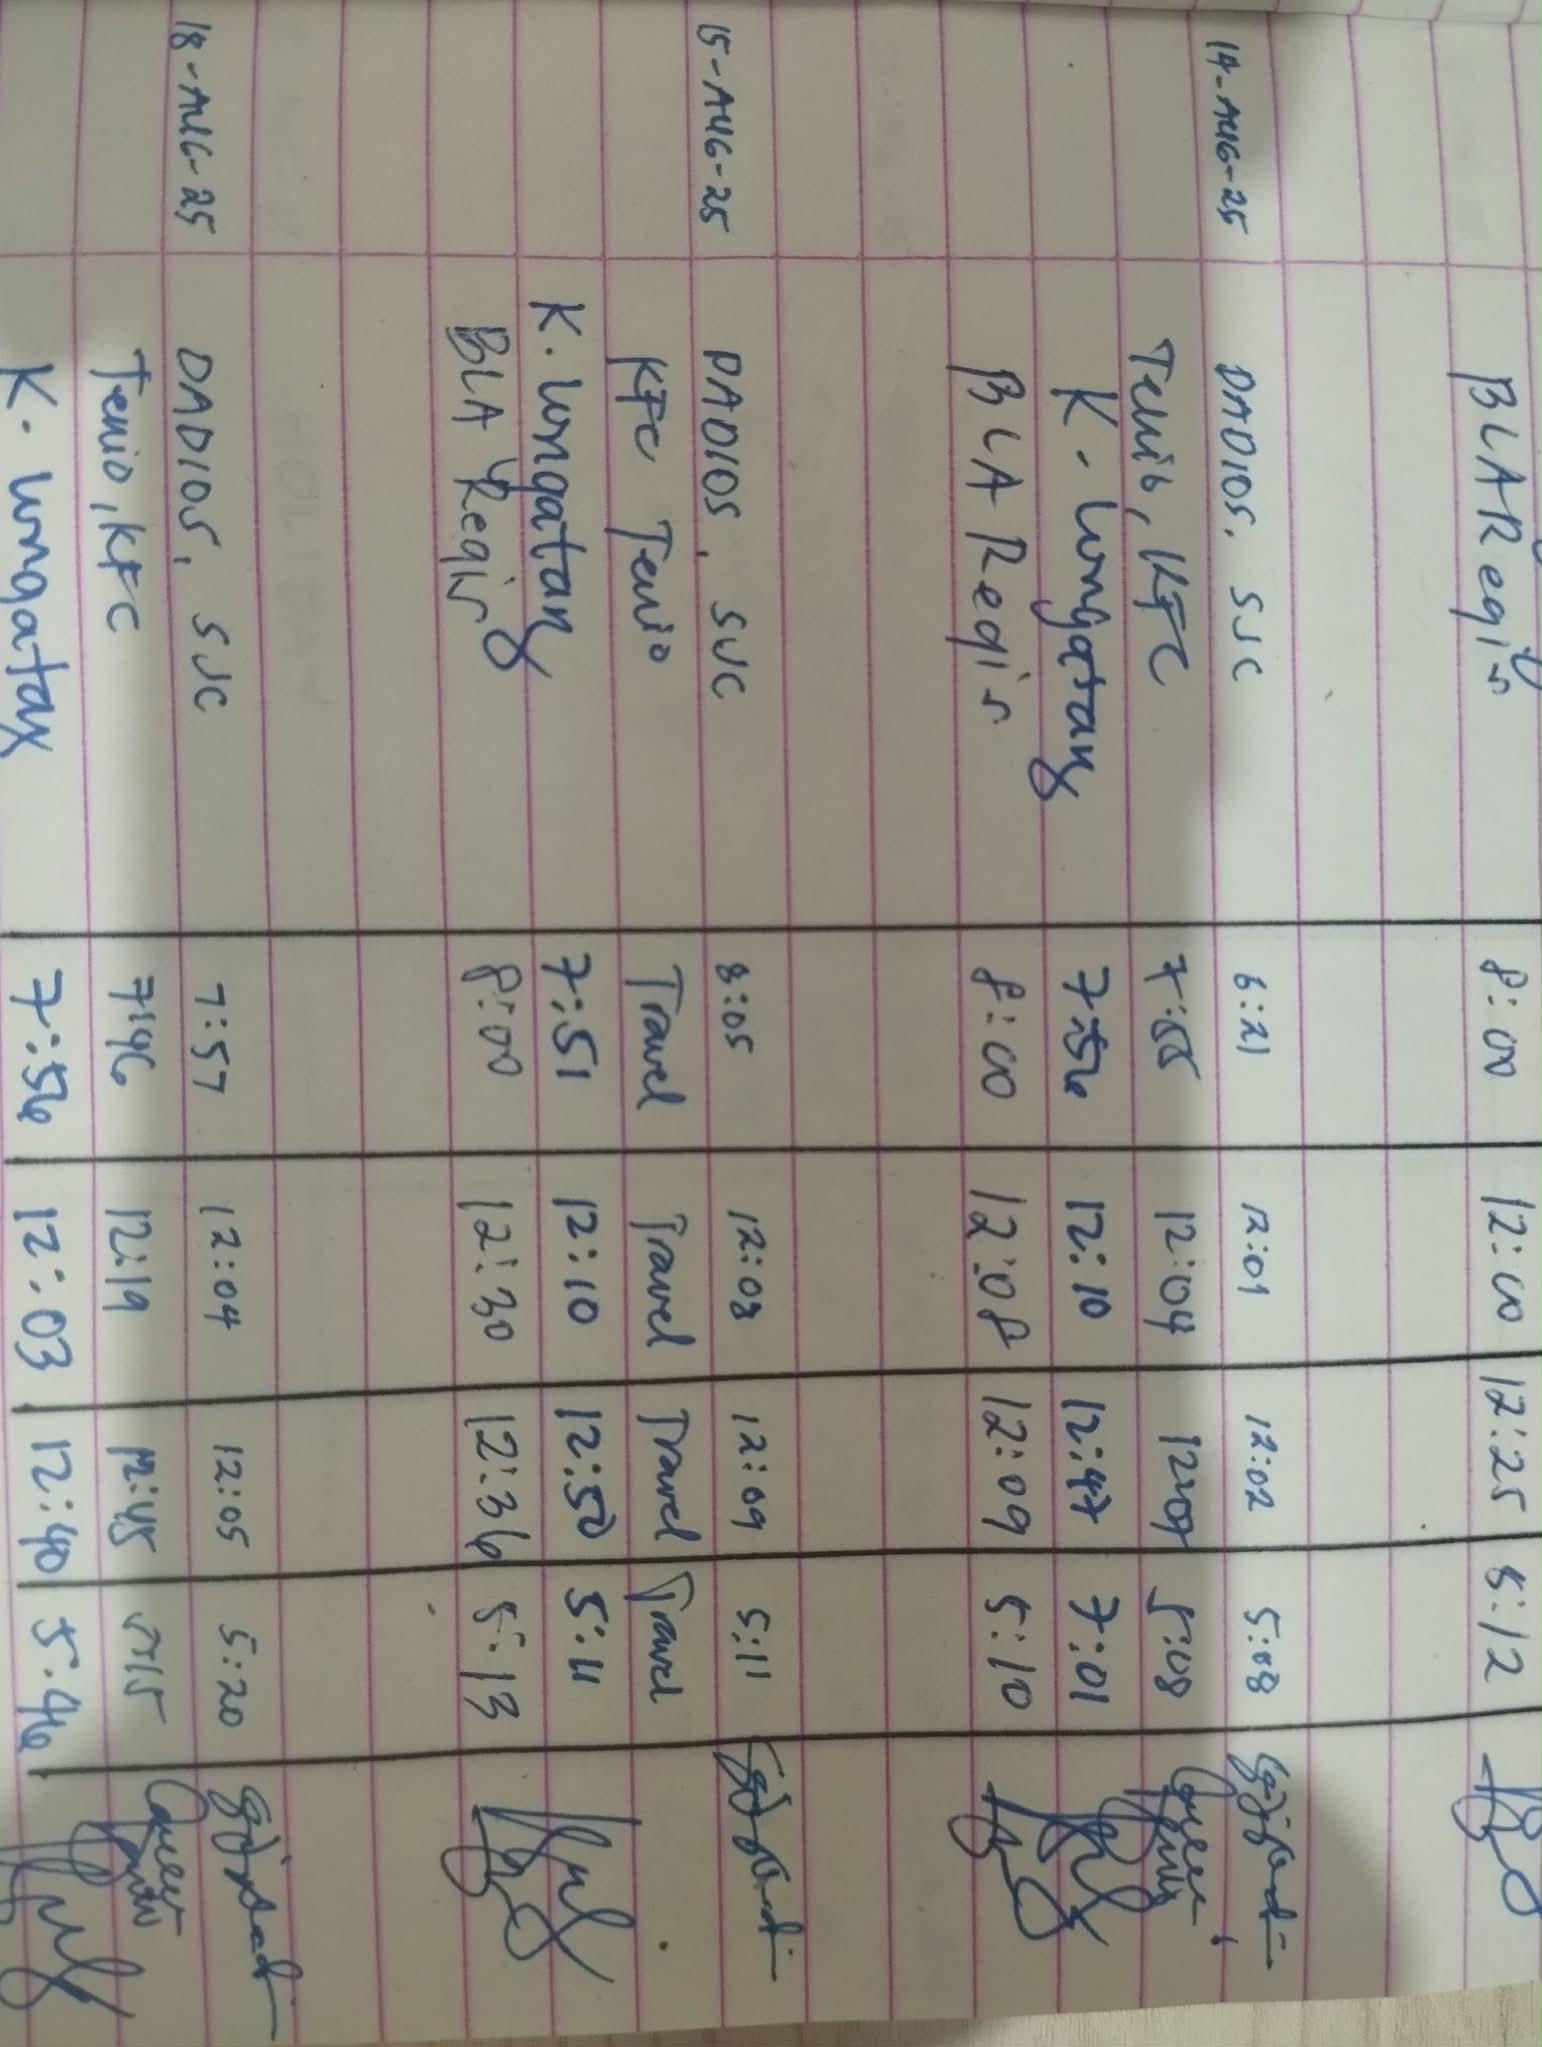 BLA Regis 8:00 12:00 12:25 5:12
14-AUG-25 DADIOS, SJC 6:21 12:01 12:02 5:08
Tenio, KFC 7:55 12:04 12:07 5:08
K. Lungatan 7:56 12:10 12:47 7:01
BLA Regis 8:00 12:08 12:09 5:10
15-AUG-25 DADIOS, SJC 8:05 12:08 12:09 5:11
KFC Tenio Travel Travel Travel Travel
K. Lungatan 7:51 12:10 12:50 5:11
BLA Regis 8:00 12:30 12:36 5:13
18-AUG-25 DADIOS, SJC 7:57 12:04 12:05 5:20
Tenio, KFC 7:46 12:19 12:45 5:15
K. Lungatan 7:56 12:03 12:40 5:46